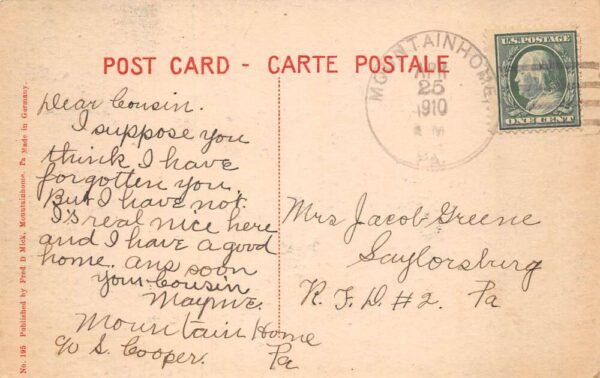 POST CARD - CARTE POSTALE
MOUNTAINHOME
APR
25
1910
PA.
U.S. POSTAGE
ONE CENT
Dear Cousin.
I suppose you
think I have
forgotten you.
But I have not.
I's real nice here
and I have a good
home. ans soon
your Cousin
Mayme.
Mountain Home
℅ S. Cooper. Pa
Mrs Jacob Greene
Saylorsburg
R. F. D. #2. Pa
No. 195 Published by Fred D Mick, Mountainhome. Pa Made in Germany.